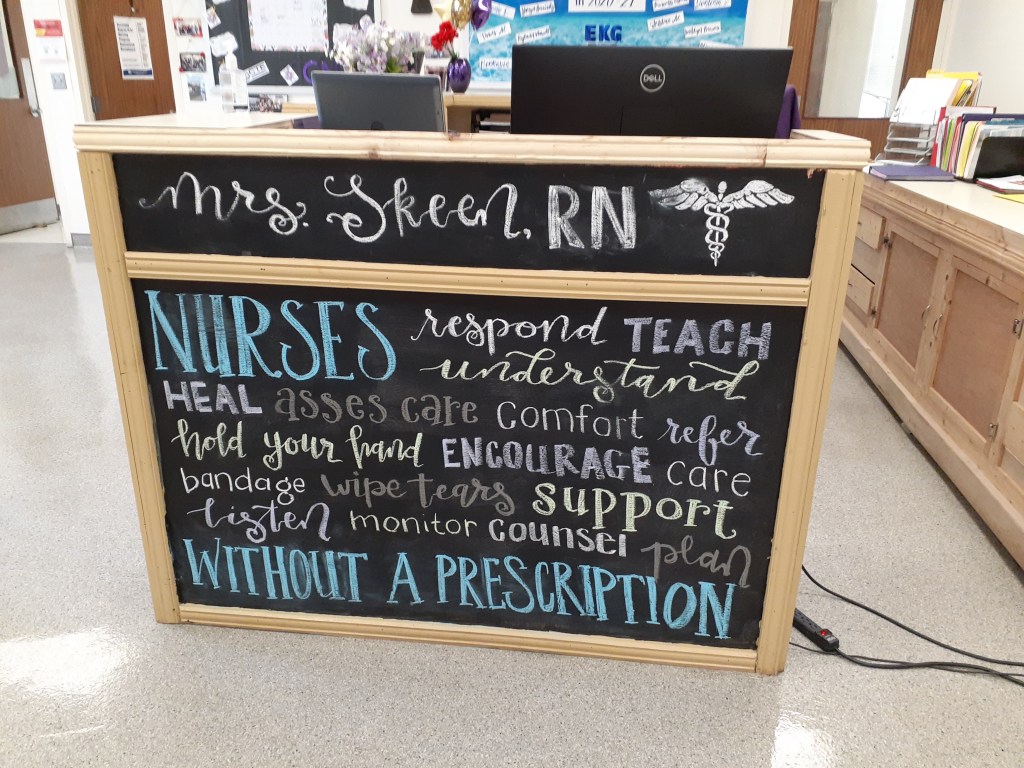 EKG
DELL
Mrs. Skeen, RN
NURSES respond TEACH
understand
HEAL asses care comfort refer
hold your hand ENCOURAGE care
bandage wipe tears support
listen monitor counsel plan
WITHOUT A PRESCRIPTION